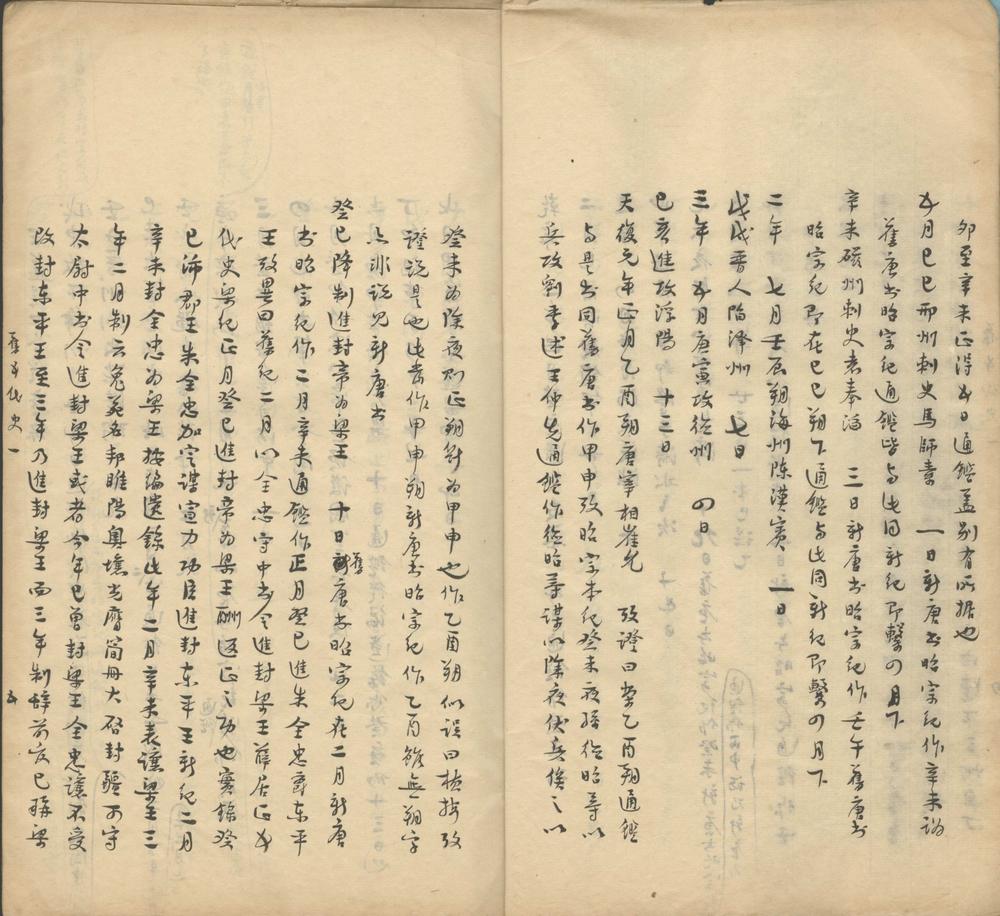 卯至辛未正得五日通鑑蓋別有所据也
五月己巳邢州刺史馬師素　一日新唐书昭宗紀作辛未誤
舊唐书昭宗紀通鑑皆与此同新紀即繫四月下
辛未磁州刺史袁奉滔　三日新唐书昭宗紀作壬午舊唐书
昭宗紀即在己巳朔下通鑑与此同新紀即繫四月下
二年　七月壬辰朔海州陈漢賓　一日
戊戌晋人陷泽州　七日
三年　五月庚寅攻徐州　四日
己亥進攻浮陽　十三日
天復元年正月乙酉朔唐宰相崔允　攷證曰案乙酉朔通鑑
与是书同舊唐书作甲申攷昭宗本紀癸未夜孫德昭等以
兵攻劉季述王仲先通鑑作德昭等謀以除夜伏兵俟之以
癸未为除夜则正朔当为甲申也作乙酉朔似误曰楨按攷
證说是也此当作甲申朔新唐书昭宗紀作乙酉雖無朔字
亦非说見新唐书
癸巳降制進封帝为梁王　十日舊唐书昭宗紀在二月新唐
书昭宗紀作二月辛未通鑑作正月癸巳進朱全忠爵东平
王攷異曰舊紀二月以全忠守中书令進封梁王薛居正五
代史梁紀正月癸巳進封帝为梁王酬返正之功也實錄癸
巳沛郡王朱全忠加定謀宣力功臣進封东平王新紀二月
辛未封全忠为梁王按編遺錄此年二月辛未表讓梁王三
年二月制云兔苑名邦睢陽奧壤光膺簡冊大啓封疆可守
太尉中书令進封梁王或者今年已曾封梁王全忠讓不受
改封东平王至三年乃進封梁王而三年制辞前后已稱梁
舊五代史一　五